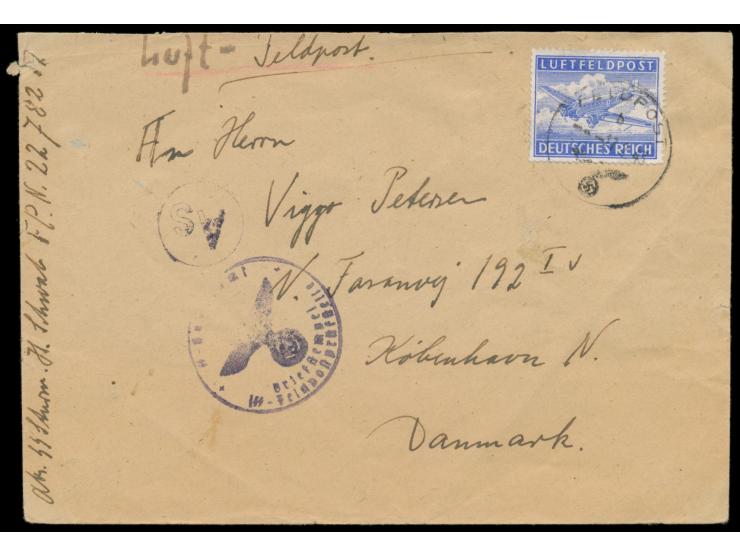 Luft - Feldpost.
LUFTFELDPOST
DEUTSCHES REICH
FELDPOST
An Herrn
Viggo Petersen
N. Farimvej 192 I v
København N.
Danmark.
SA
Briefstempel
SS-Feldpostprüfstelle
Abs. SS Sturm. H. Schwab F.P.N. 22782 D